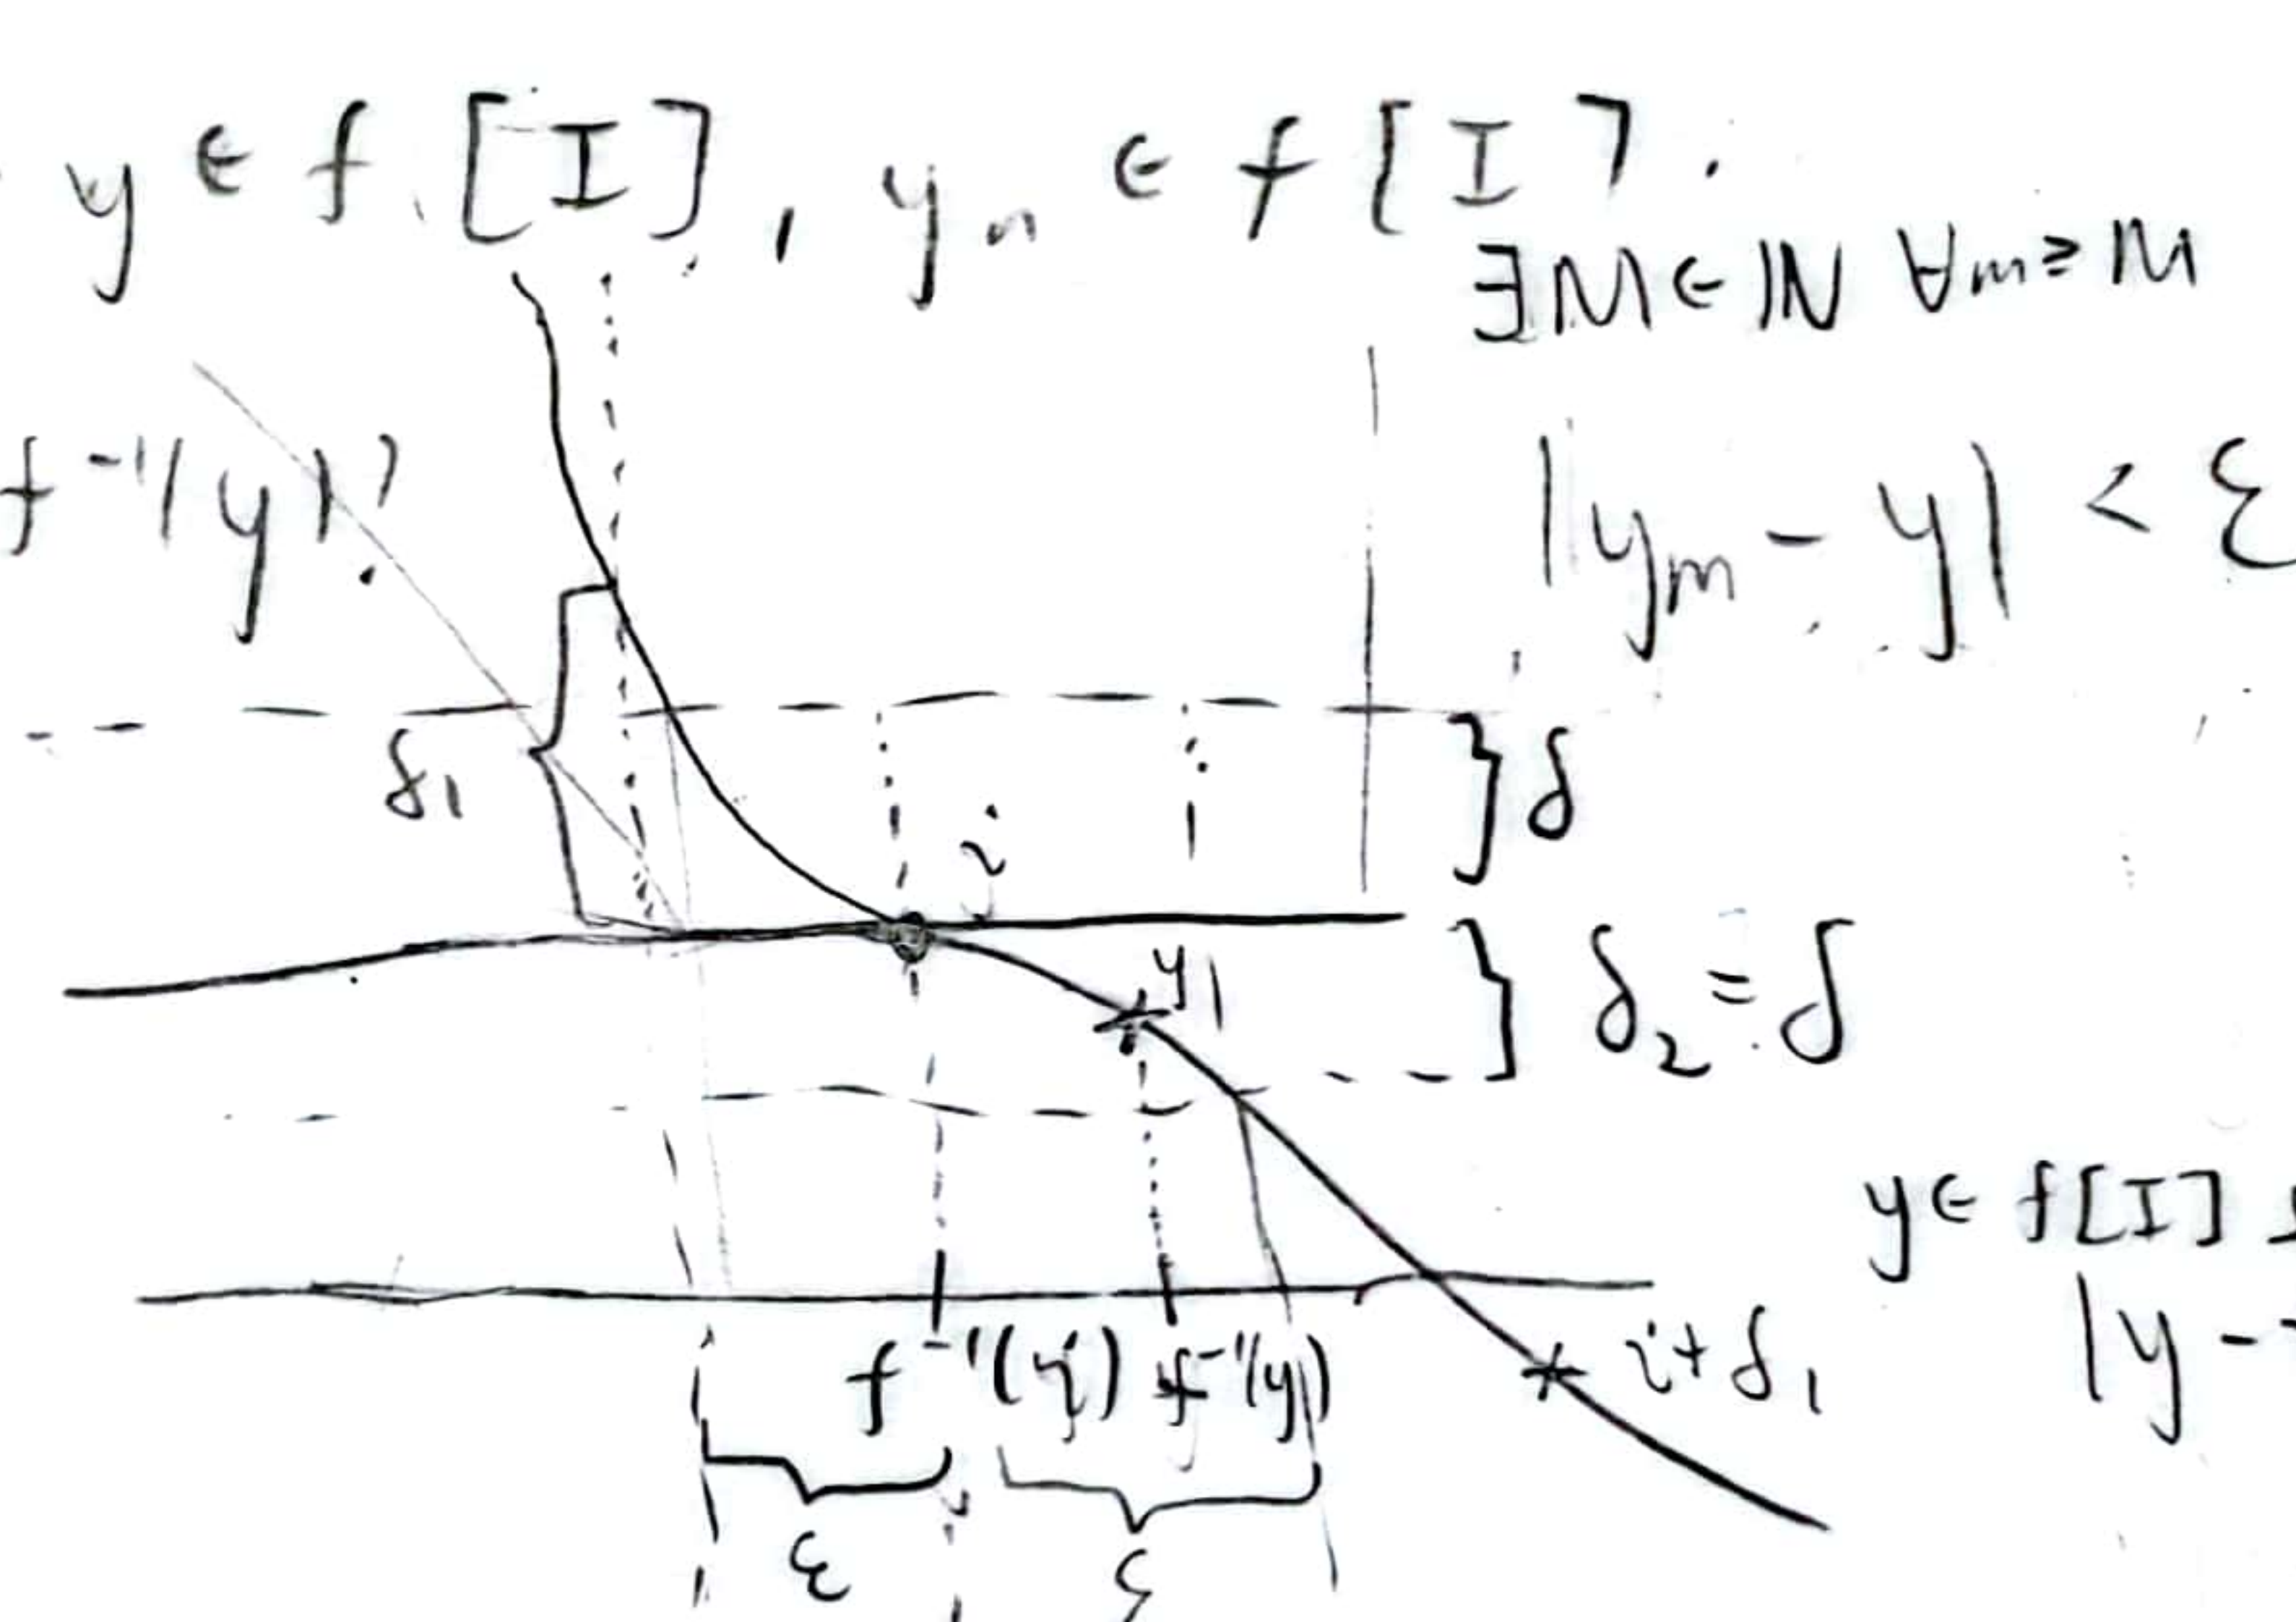 y ∈ f [I], yₙ ∈ f [I].
∃M∈ℕ ∀m≥M
f⁻¹(y)?
|yₘ - y| < ε
δ₁
} δ
i
y₁
} δ₂ = δ
y∈ f[I]
f⁻¹(i) f⁻¹(y)
i+δ₁
|y -
ε
ε